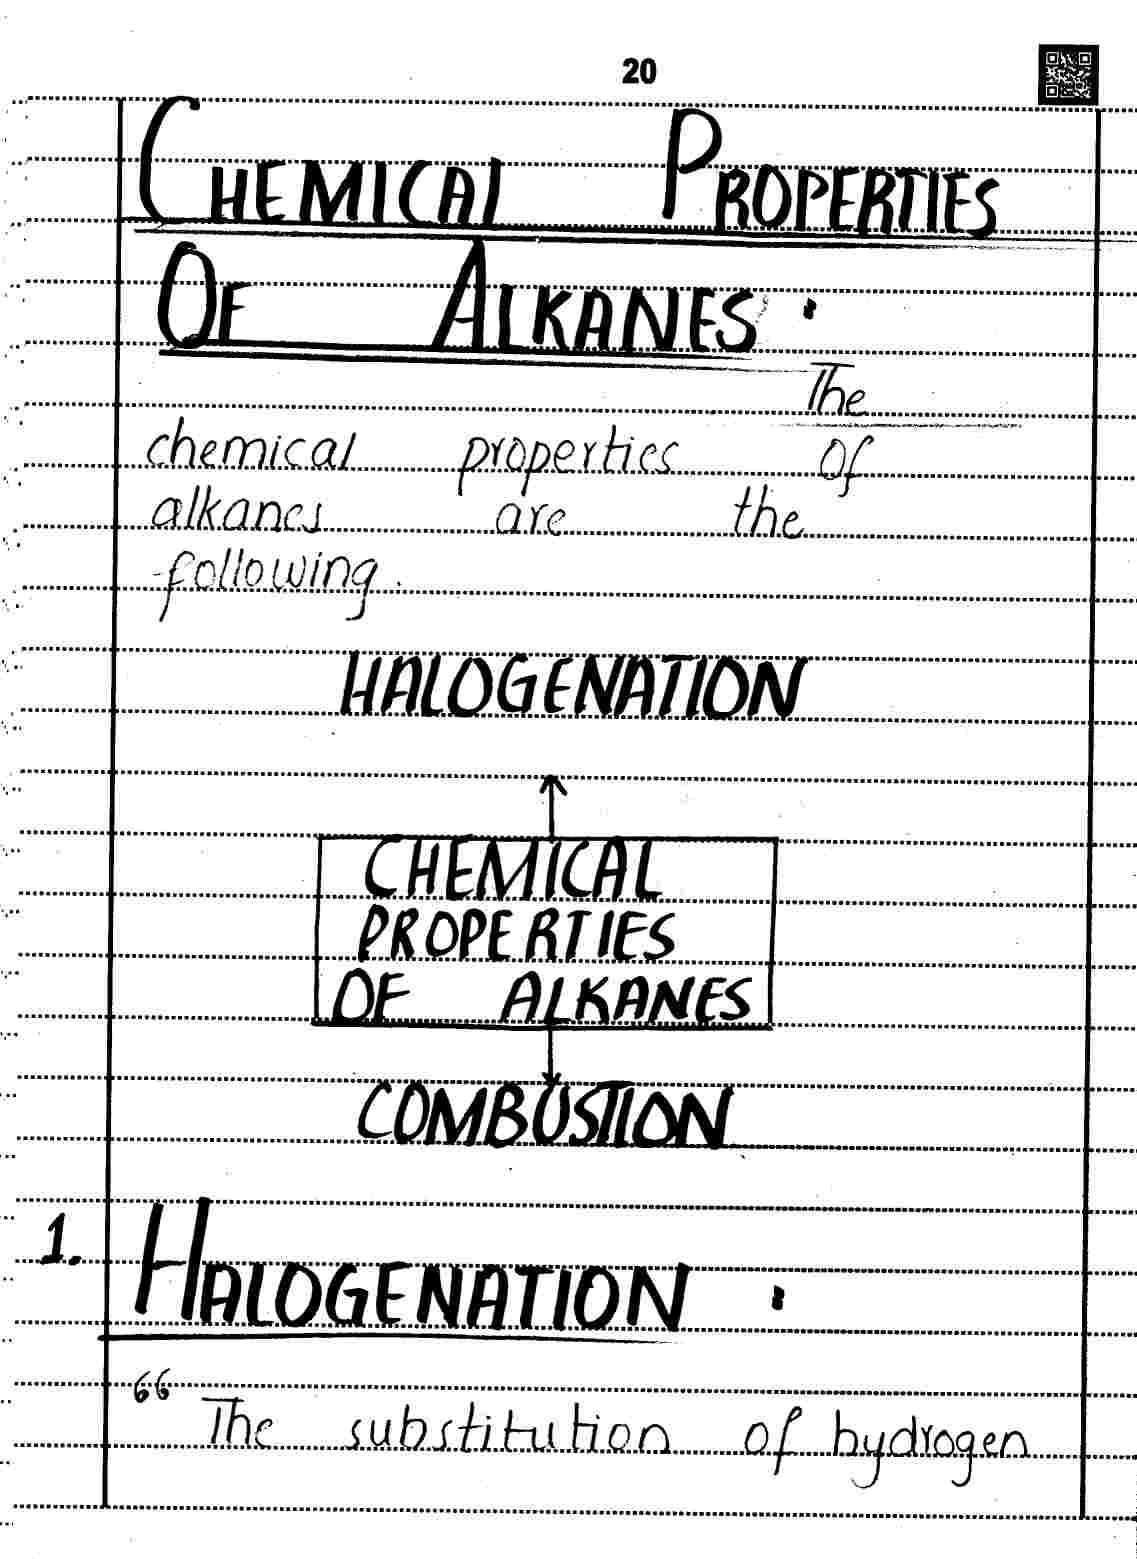 20
CHEMICAL PROPERTIES
OF ALKANES :
The
chemical properties of
alkanes are the
following.
HALOGENATION
CHEMICAL
PROPERTIES
OF ALKANES
COMBUSTION
1. HALOGENATION :
“ The substitution of hydrogen